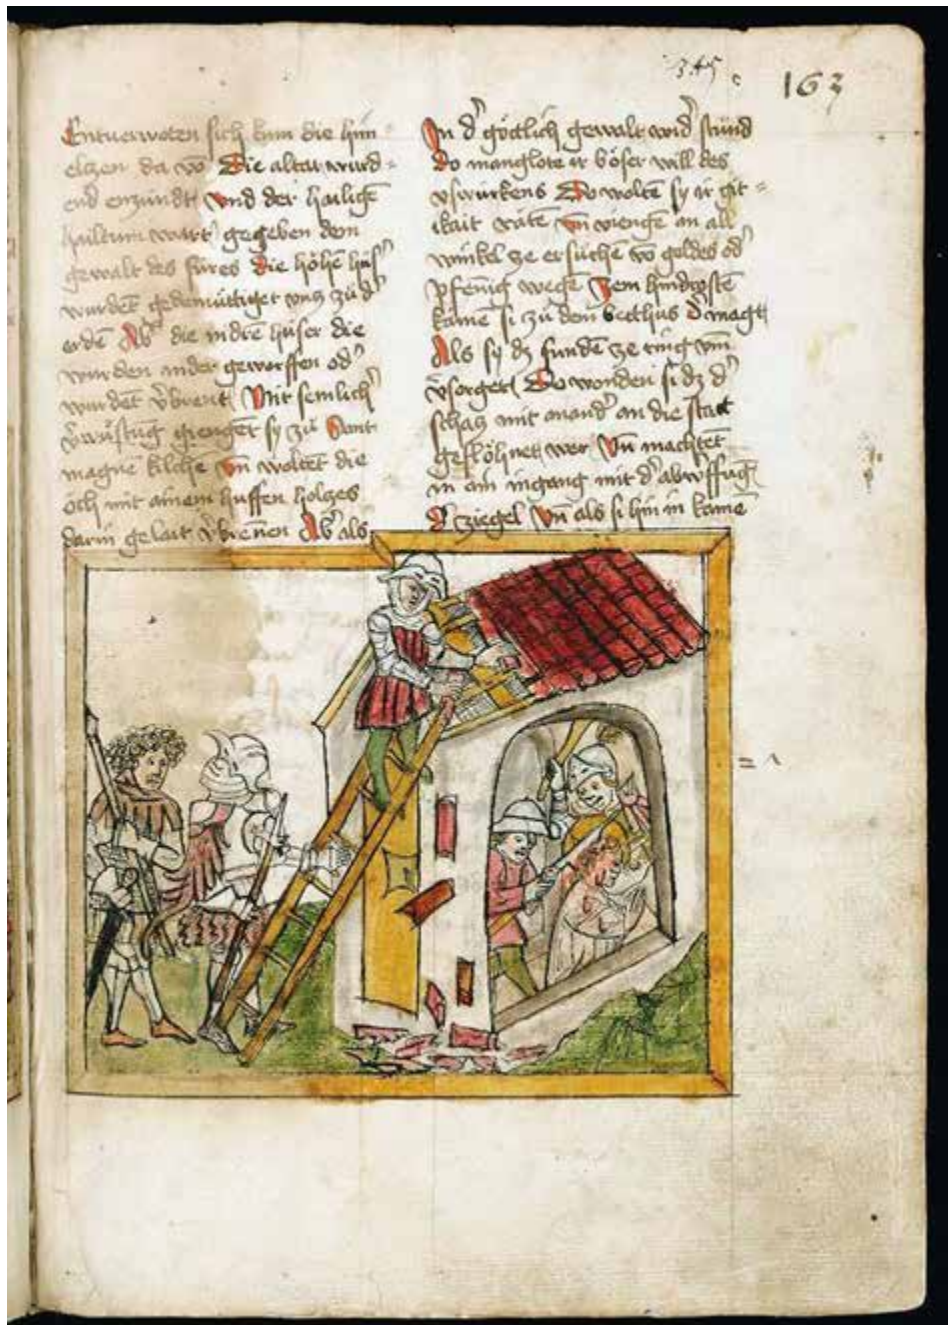 345
163
Entverwoten sich kum die hin
elgen da vō Die altar wurd=
end enzundt vnd der hailigē
hailtum wart gegeben dem
gewalt des fures die höhen hüs
wurdēt gedemütiget vnz zů d
erdē Ab die indre hüser die
wurden nider geworffen od
wurdēt v̄brent Mit semlich
v̄wüstūg giengēt sy zů Sant
magnē kilchē vn̄ woltēt die
öch mit ainem huffen holtzes
darin gelait v̄brēnen Ab als
In d götlich gewalt wid stůnd
Do manglote ir böser will des
vswurkens Do woltē sy ir git=
ikait ratē vn̄ viengē an all
winkel ze ersůchen vō geldes od
pfennig wegē Zem hindrostē
kamē si zů dem bethus d magt
Als sy dz fundē ze ring vm̄
v̄sorget Do wonden si dz d
schatz mit anand an die statt
geflöhnet wer Vn̄ machtēt
in ain ingang mit d abwerffūg
d ziegel Vn̄ als si hin in kamē